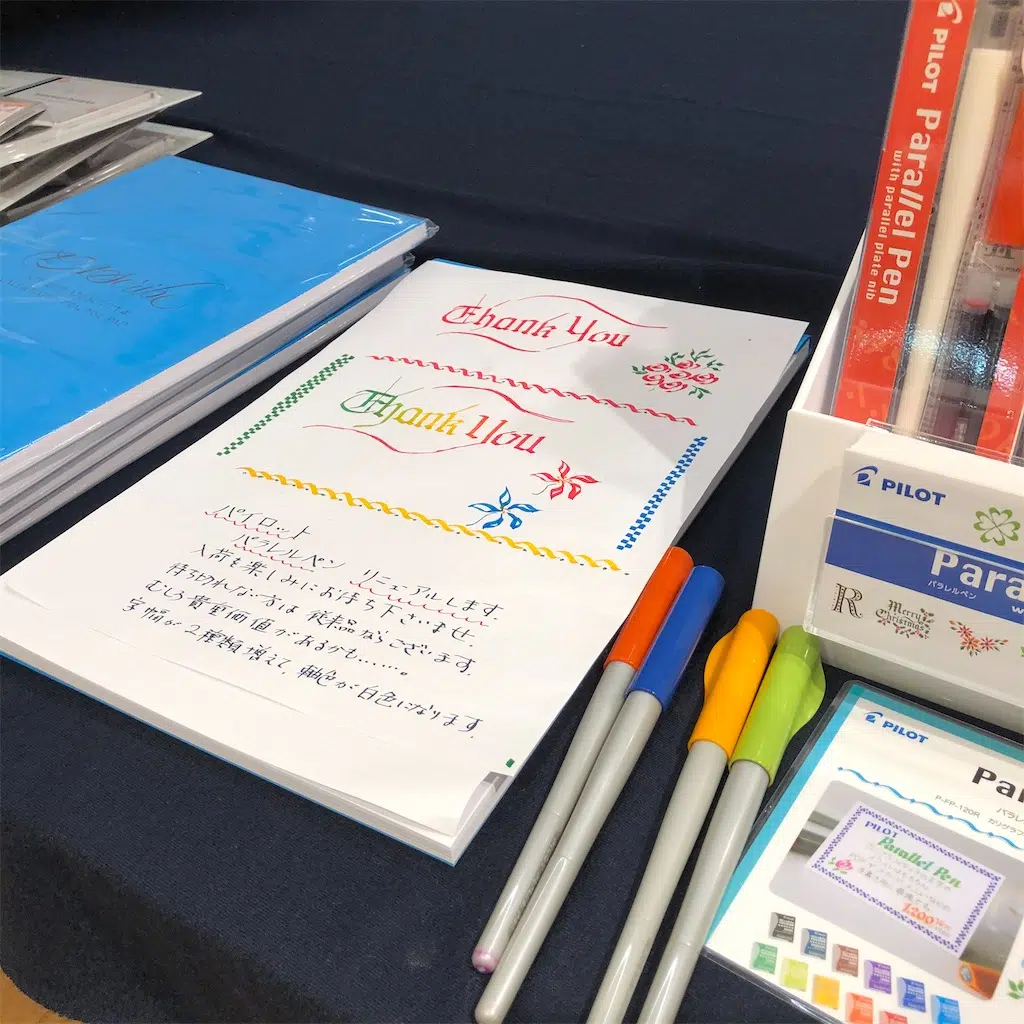 Thank You
Thank You
パイロット
パラレルペン リニューアルします
入荷を楽しみにお待ち下さいませ.
待ち切れない方は 従来品がございます.
むしろ貴重価値があるかも……。
字幅が2種類増えて、軸色が白色になります.
PILOT Parallel Pen
with parallel plate nib
PILOT
Para
パラレルペン
R
Merry
Christmas
PILOT
Pa
P-FP-120R カリグラフ
PILOT
Parallel Pen
1200